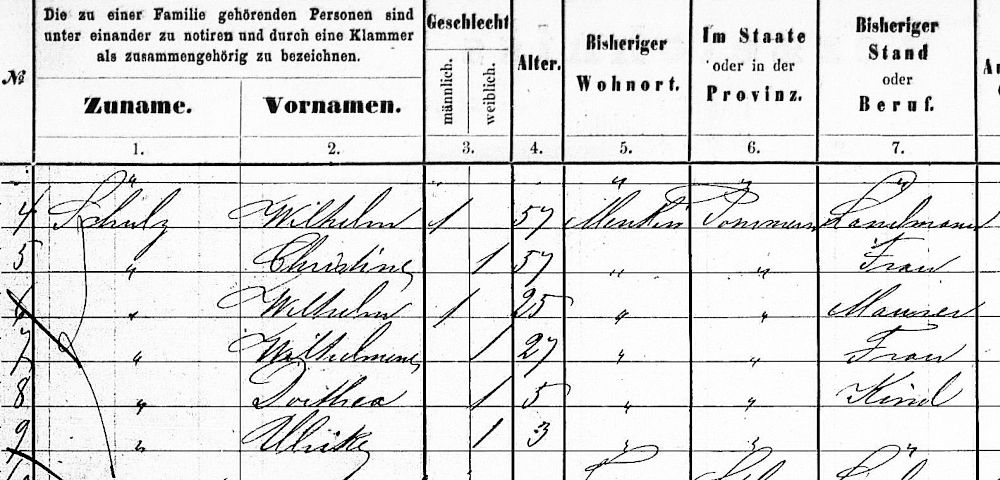 Die zu einer Familie gehörenden Personen sind
unter einander zu notiren und durch eine Klammer
als zusammengehörig zu bezeichnen.
№ Zuname. Vornamen. Geschlecht männlich. weiblich. Alter. Bisheriger Wohnort. Im Staate oder in der Provinz. Bisheriger Stand oder Beruf.
1. 2. 3. 4. 5. 6. 7.
" " " " "
4 Schulz Wilhelm 1 57 Menkin Pommern Landmann
5 " Christine 1 57 " " Frau
6 " Wilhelm 1 25 " " Maurer
7 " Wilhelmine 1 27 " " Frau
8 " Dorthea 1 5 " " Kind
9 " Ulrike 1 3 " " "